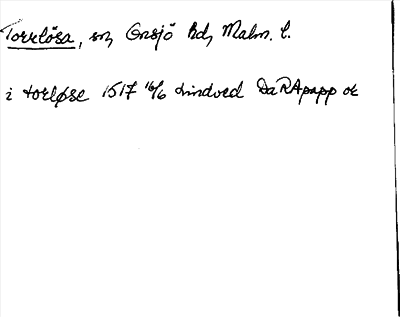 Torrlösa, sn, Onsjö hd, Malm. l.
i torløse 1517 16/6 Lindved DaRApapp or